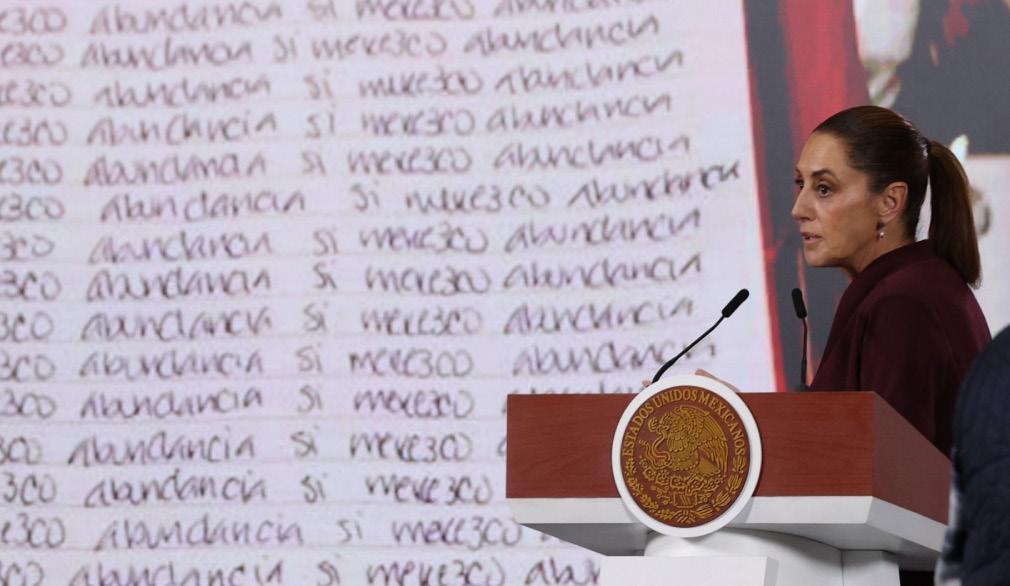 e3co abundancia si mere3co abundancia
e3co abundancia si mere3co abundancia
e3co abundancia si mere3co abundancia
e3co abundancia si mere3co abundancia
e3co abundancia si mere3co abundancia
e3co abundancia si mere3co abundancia
3co abundancia si mere3co abundancia
3co abundancia si mere3co abundancia
3co abundancia si mere3co abundancia
3co abundancia si mere3co abundancia
3co abundancia si mere3co
3co abundancia si mere3co
3co abundancia si mere3co
e3co abundancia si mere3co
3co abundancia si mere3co abundancia
ESTADOS UNIDOS MEXICANOS